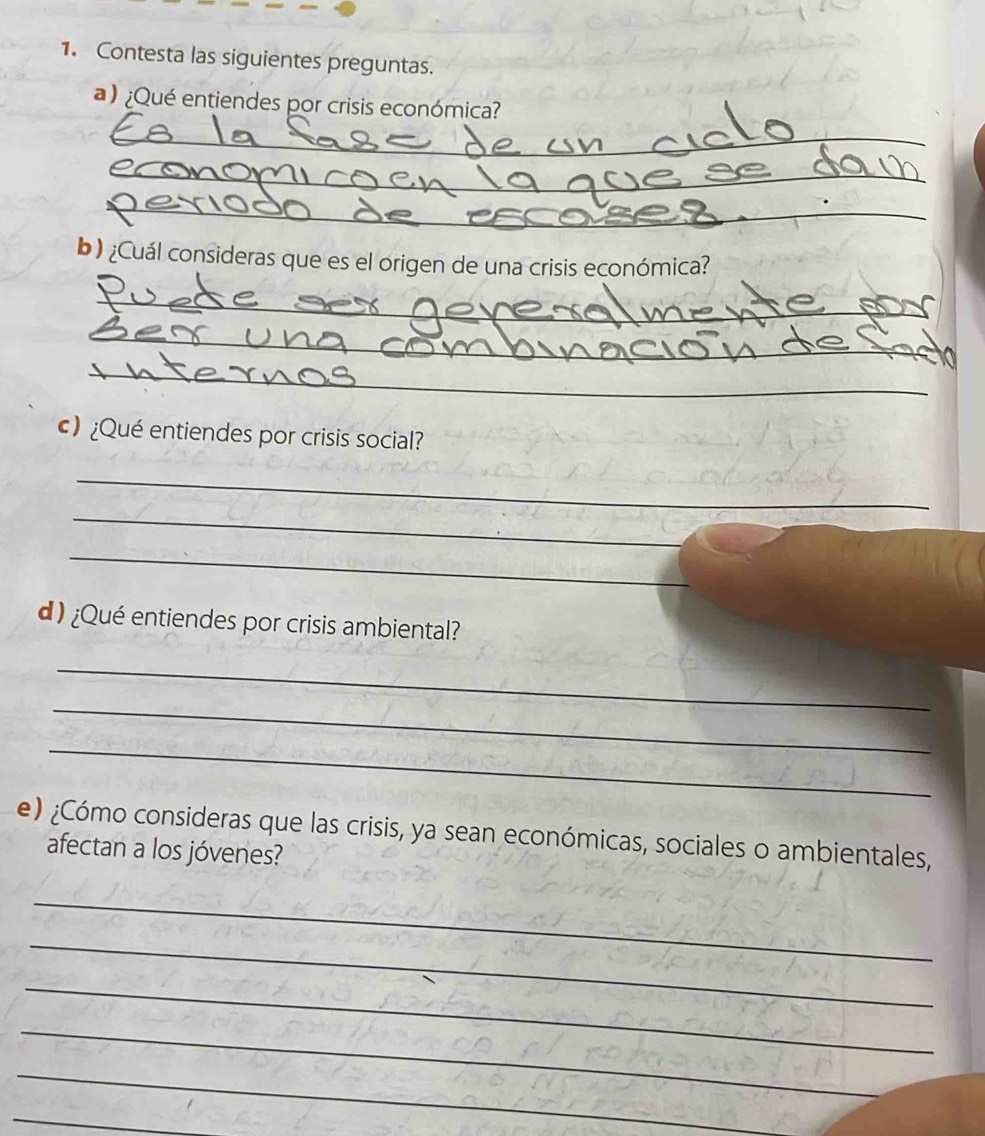 1. Contesta las siguientes preguntas.
a) ¿Qué entiendes por crisis económica?
Es la fase de un ciclo
economico en la que se dan
periodo de escases.
b) ¿Cuál consideras que es el origen de una crisis económica?
Puede ser generalmente por
ser una combinación de
internos
c) ¿Qué entiendes por crisis social?
d) ¿Qué entiendes por crisis ambiental?
e) ¿Cómo consideras que las crisis, ya sean económicas, sociales o ambientales,
afectan a los jóvenes?